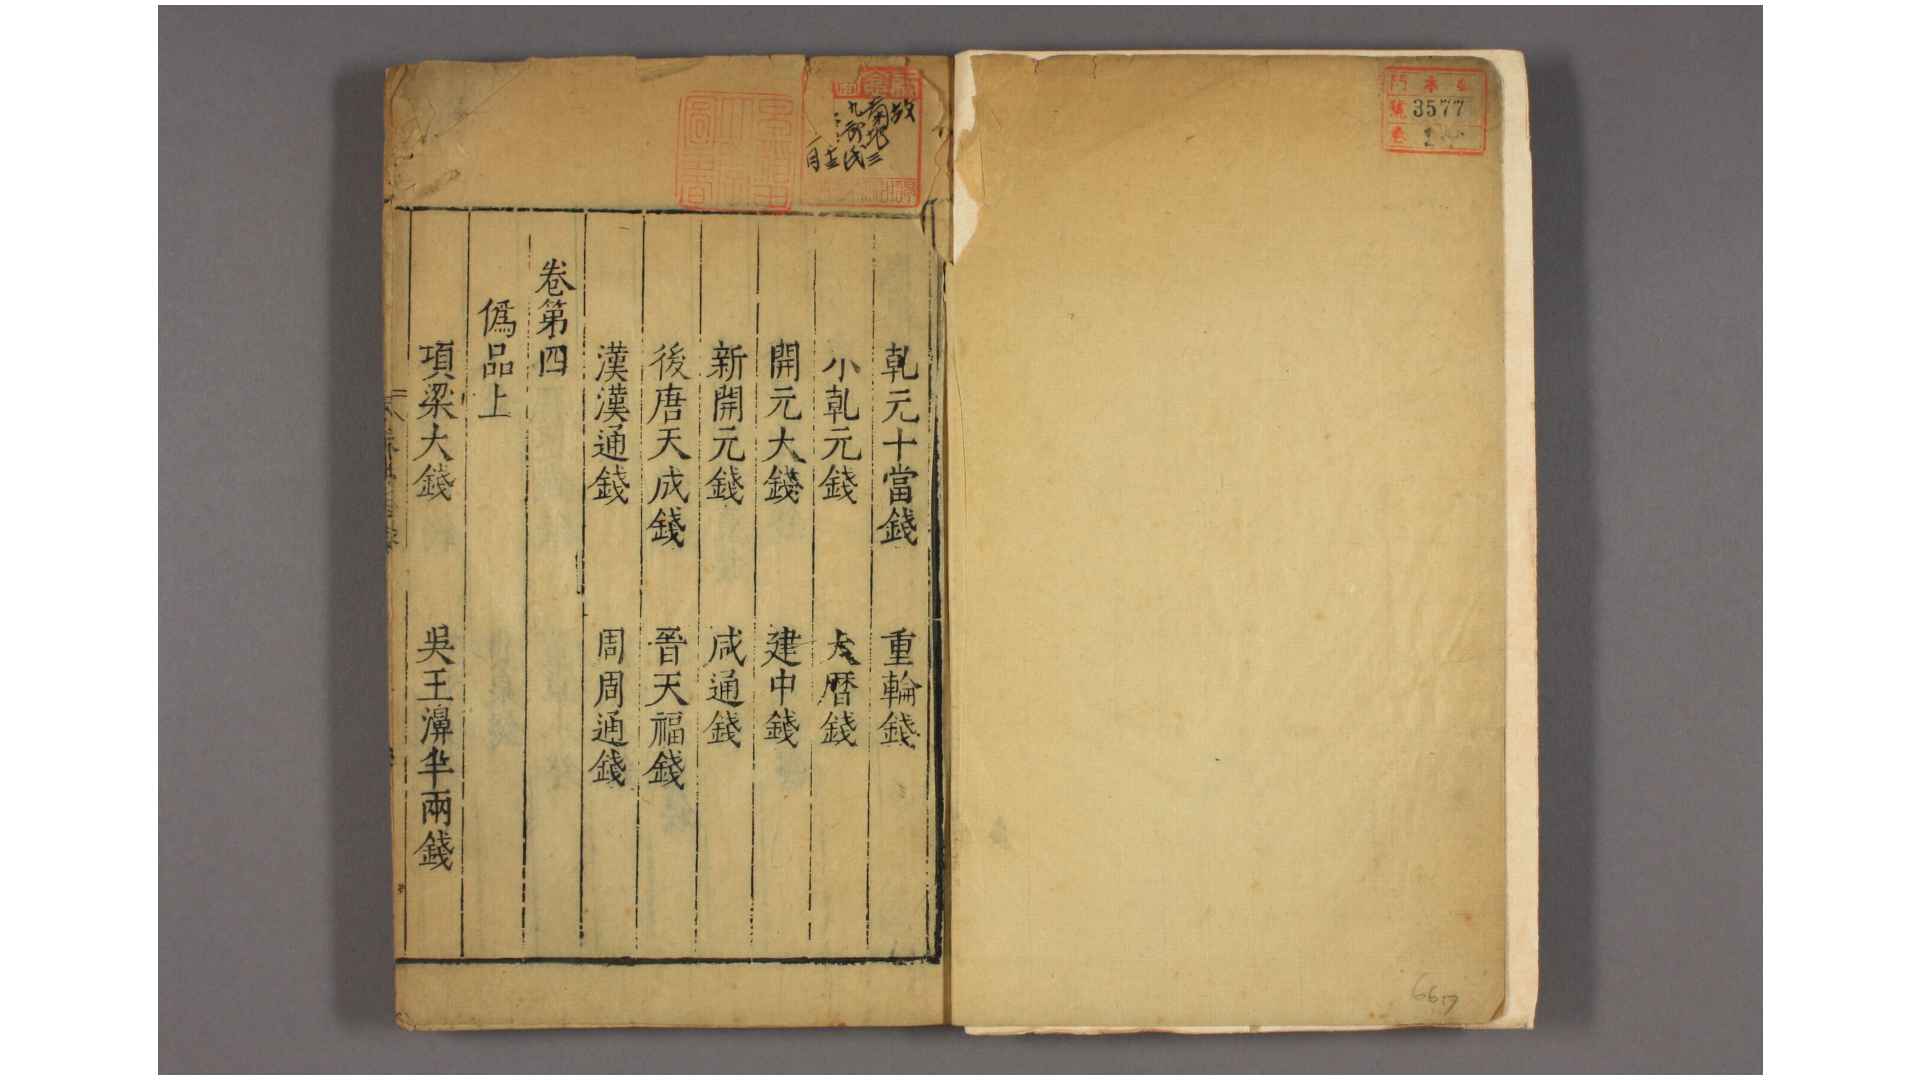 門 本 4
號 3577
卷 2
乹元十當錢 重輪錢
小乹元錢 大暦錢
開元大錢 建中錢
新開元錢 咸通錢
後唐天成錢 晉天福錢
漢漢通錢 周周通錢
卷第四
僞品上
項梁大錢 吳王濞半兩錢